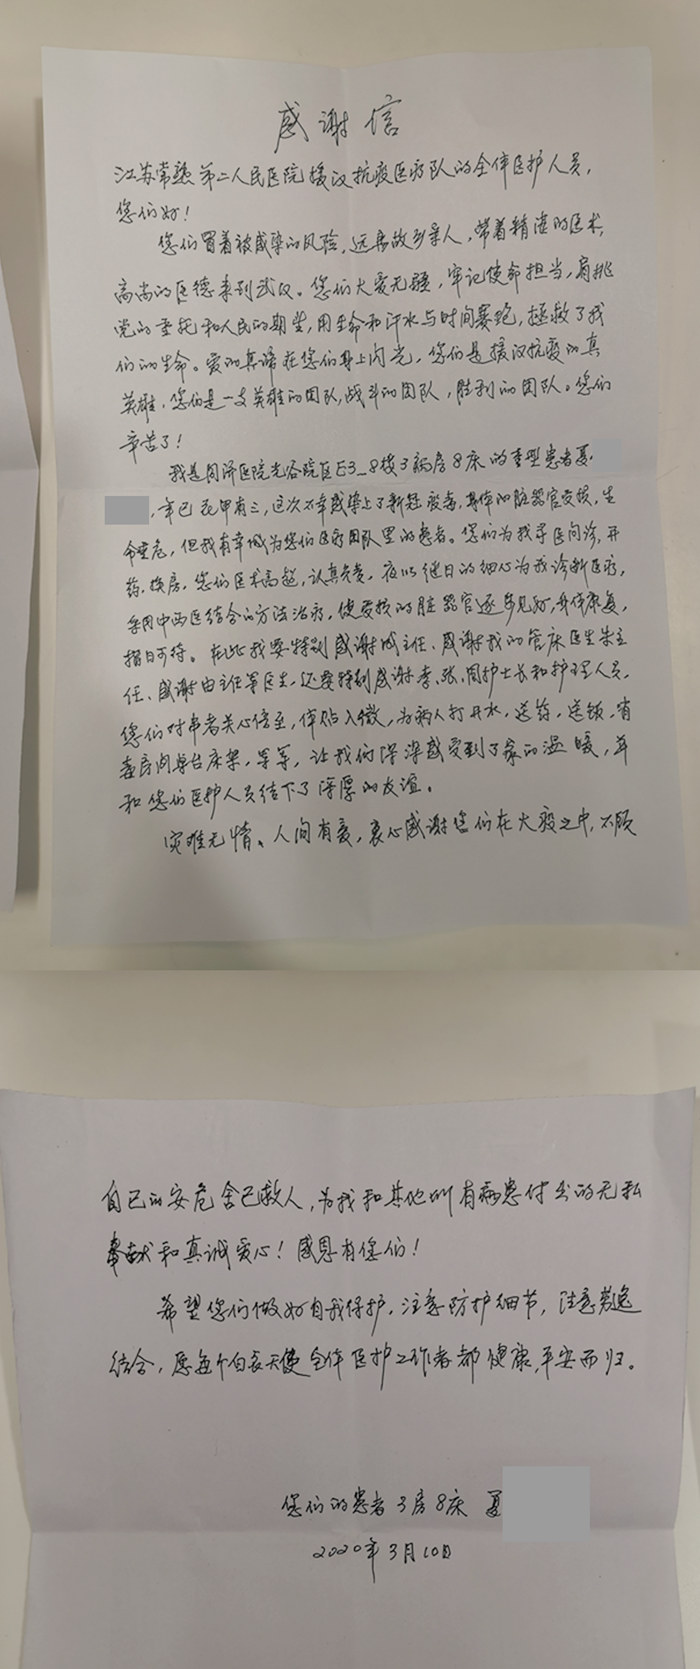 感谢信
江苏常熟第二人民医院援汉抗疫医疗队的全体医护人员，
您们好！
您们冒着被感染的风险，远离故乡亲人，带着精湛的医术，
高尚的医德来到武汉。您们大爱无疆，牢记使命担当，肩挑
党的重托和人民的期望，用生命和汗水与时间赛跑，拯救了我
们的生命。爱的真谛在您们身上闪光，您们是援汉抗疫的真
英雄，您们是一支英雄的团队，战斗的团队，胜利的团队。您们
辛苦了！
我是同济医院光谷院区E3_8楼3病房8床的重型患者夏
，年已花甲有三，这次不幸感染上了新冠病毒，身体的脏器官受损，生
命垂危，但我有幸成为您们医疗团队里的患者。您们为我寻医问诊，开
药，换房，您们医术高超，认真负责，夜以继日的细心为我诊断医疗，
采用中西医结合的方法治疗，使受损的脏器官逐步见好，身体康复，
指日可待。在此我要特别感谢成主任、感谢我的管床医生朱主
任、感谢由主任等医生，还要特别感谢李、张、周护士长和护理人员，
您们对患者关心倍至，体贴入微，为病人打开水，送药，送饭，
房间，等等，让我们深深感受到了家的温暖，并
和您们医护人员结下了深厚的友谊。
灾难无情。人间有爱，衷心感谢您们在大疫之中，不顾
自己的安危舍己救人，为我和其他所有病患付出的无私
奉献和真诚爱心！感恩有您们！
希望您们做好自我保护，注意防护细节，注意劳逸
结合，愿每个白衣天使全体医护工作者都健康，平安而归。
您们的患者3房8床 夏
2020年3月10日